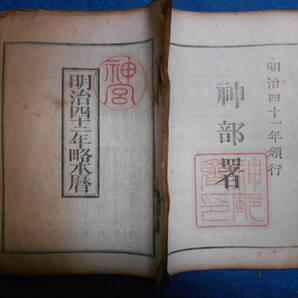 明治四十一年頒行
神部署
神部署印
神宮
明治四十一年略本暦